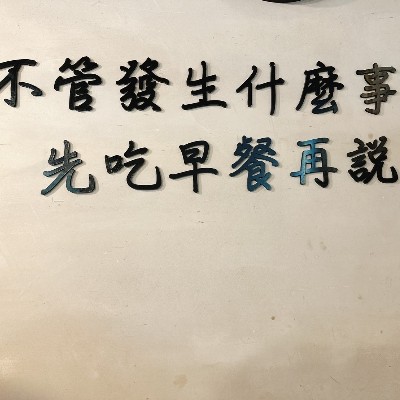 不管發生什麼事
先吃早餐再說